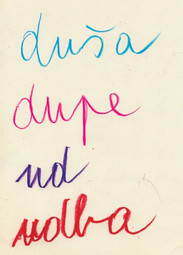 duša
dupe
ud
udba